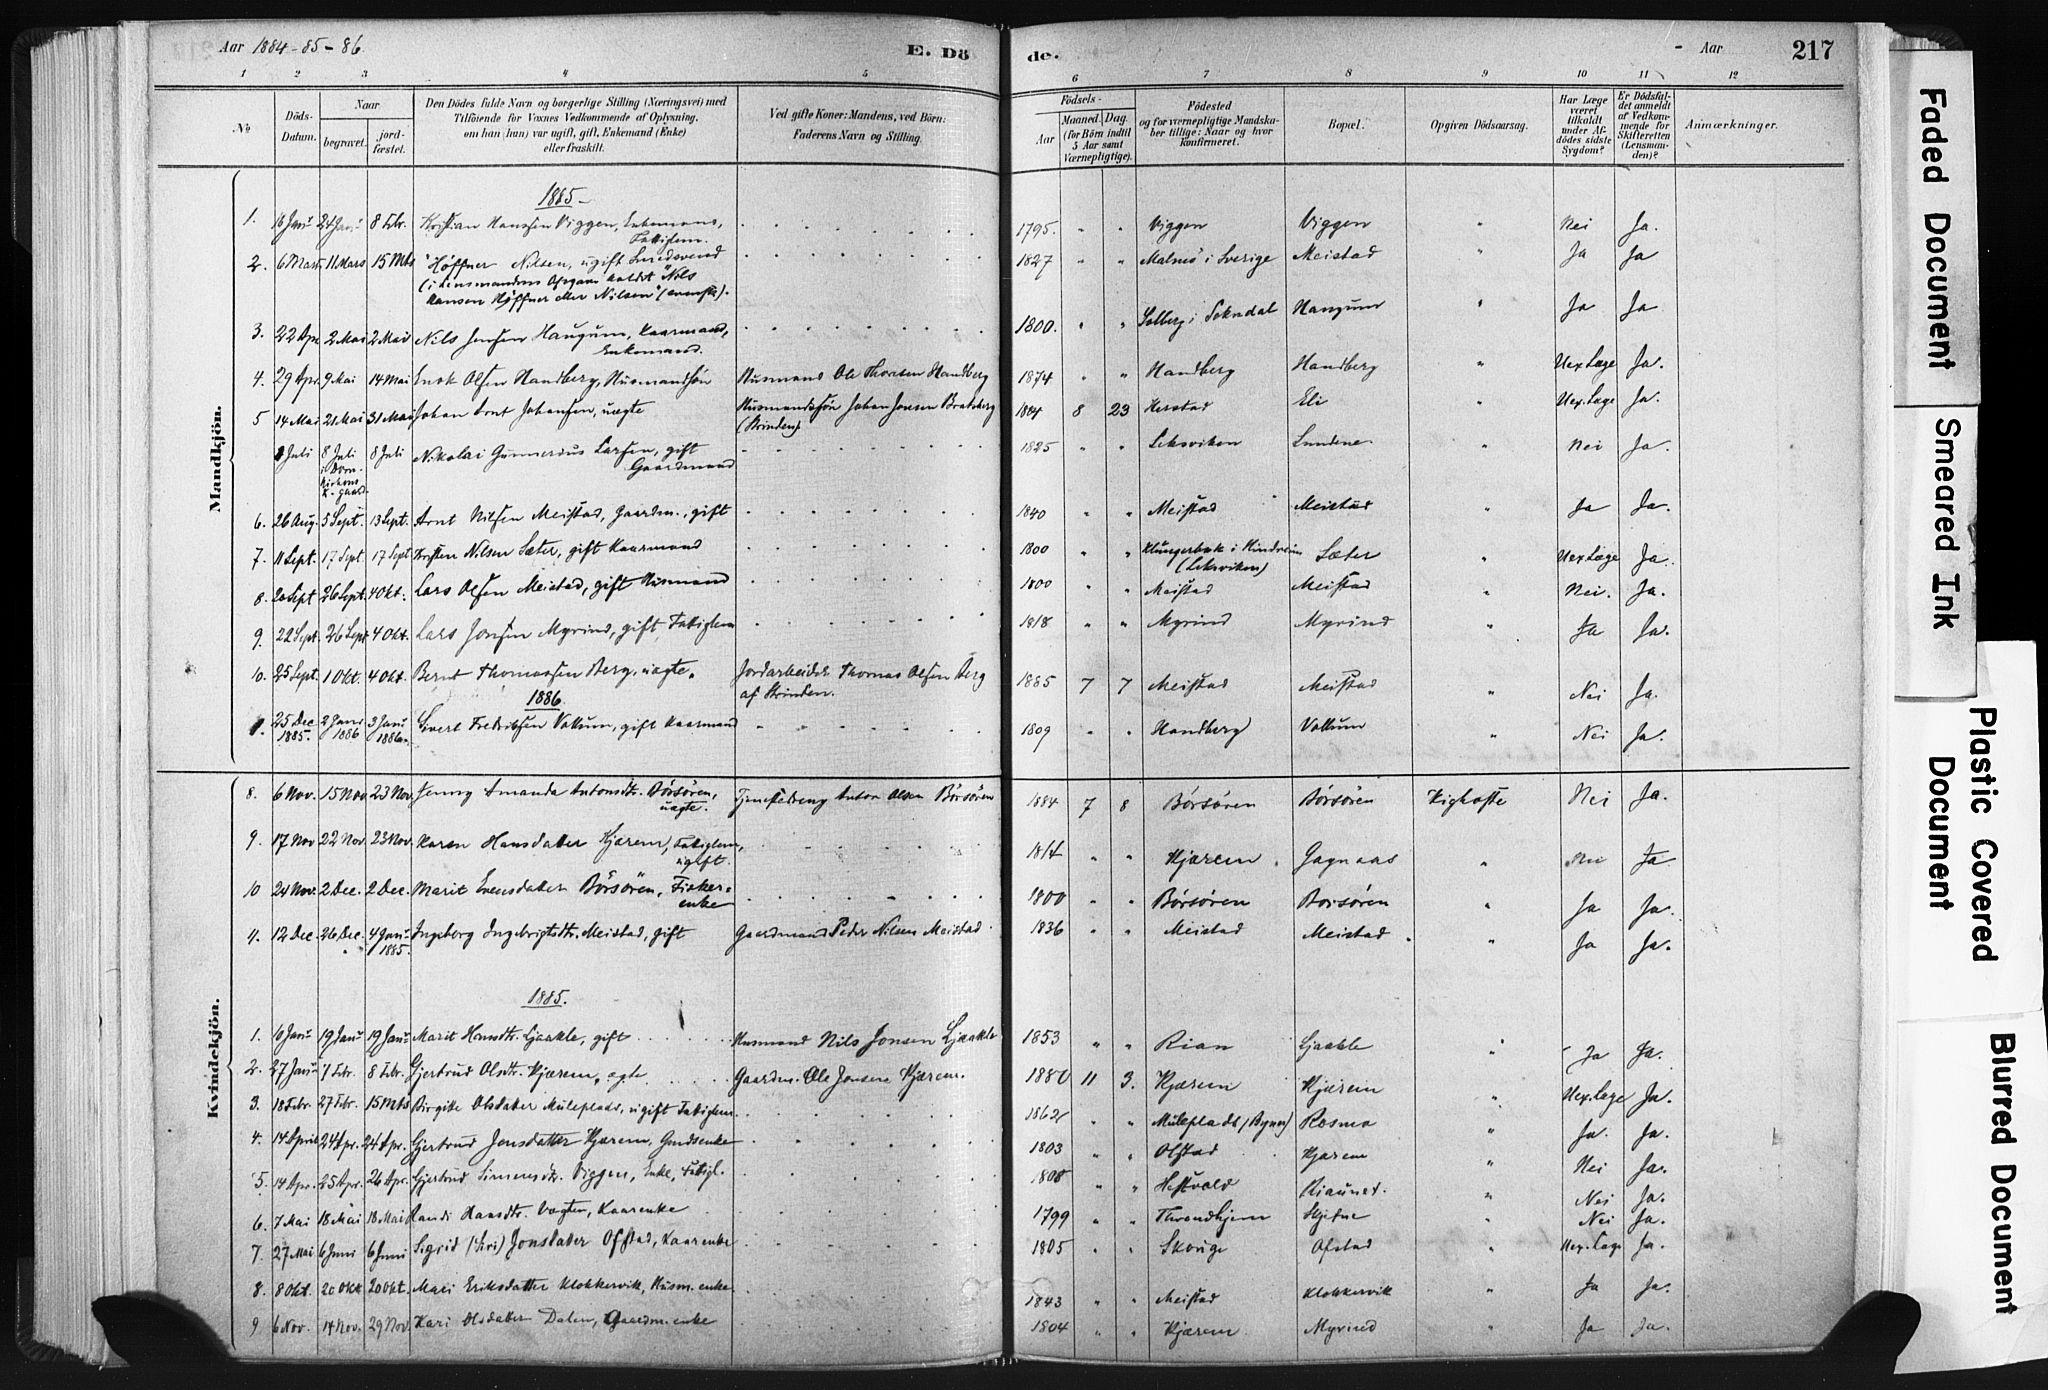 Aar 1884-85-86.
E. Dö
de.
- Aar
217
1 2 3 4 5 6 7 8 9 10 11 12
№
Döds-Datum.
Naar
begravet.
jord-fæstet.
Den Dödes fulde Navn og borgerlige Stilling (Næringsvei) med
Tilföiende for Voxnes Vedkommende af Oplysning,
om han (hun) var ugift, gift, Enkemand (Enke)
eller fraskilt.
Ved gifte Koner: Mandens, ved Börn:
Faderens Navn og Stilling.
Födsels-
Aar
Maaned. Dag.
(for Börn indtil
5 Aar samt
Værnepligtige).
Födested
og for værnepligtige Mandska-
ber tillige: Naar og hvor
konfirmeret.
Bopæl.
Opgiven Dödsaarsag.
Har Læge
været
tilkaldt
under Af-
dödes sidste
Sygdom?
Er Dödsfal-
det anmeldt
af Vedkom-
mende for
Skifteretten
(Lensman-
den)?
Anmærkninger.
Mandkjön.
1885
1. 16 Janu 24 Janu 8 Febr. Kristian Hansen Viggen, Enkemand, Fattiglem. 1795. " " Viggen Viggen " Nei Ja.
2. 6 Mars 11 Mars 15 Mts "Höffner Nilsen, ugift Smedsvend
(i Lensmandens Opgave kaldt "Nils
Hansen Höffner eller Nilsen" (svensk). 1827 " " Malmö i Sverige Meistad " Ja Ja
3. 22 Apr 2 Mai 2 Mai Nils Jensen Haugum, Kaarmand, Enkemand. 1800. " " Solberg i Soknedal Haugum " Ja Ja
4. 29 Apr. 9 Mai 14 Mai Enok Olsen Handberg, Husmandssön Husmand Ole Thorsen Handberg 1874 " " Handberg Handberg " Uex.Læge Ja.
5 14 Mai 21 Mai 31 Mai Johan Arnt Johansen, uægte Husmandssön Johan Jonsen Bratsberg
(Strinden) 1884 8 23 Kerstad Eli Uex.Læge Ja.
1 Juli 8 Juli i Dom-kirkens K.gaard. 8 Juli Nikolai Gunnerius Larsen, gift Gaardmand 1825 " " Leksviken Lundene " Nei Ja.
6. 26 Aug. 5 Sept. 13 Sept. Arnt Nilsen Meistad, Gaardm., gift 1840 " " Meistad Meistad " Ja Ja.
7. 11 Sept. 17 Sept. 17 Sept Kristen Nilsen Sæter, gift Kaarmand 1800 " " Klungerbak i Hindrem
(Leksviken) Sæter " Uex.Læge Ja.
8. 20 Sept 26 Sept. 4 Okt. Lars Olsen Meistad, gift Husmand 1800 " " Meistad Meistad " Nei. Ja.
9. 22 Sept. 26 Sept 4 Okt. Lars Jonsen Myrind, gift Fattiglem 1818 " " Myrind Myrind " Ja Ja.
10. 25 Sept. 1 Okt. 4 Okt. Bernt Thomassen Berg, uægte. Jordarbeider Thomas Olsen Berg
af Strinden. 1885 7 7 Meistad Meistad " Nei Ja.
1886
1. 25 Dec 1885. 2 Janu 1886 3 Janu 1886. Sivert Fredriksen Vollum, gift Kaarmand 1809 " " Handberg Vollum " Nei Ja.
Kvindekjön.
8. 6 Nov. 15 Nov 23 Nov. Jenny Amanda Antonsdtr. Börsören, uægte. Tjenestedreng Anton Olsen Börsören 1884 7 8 Börsören Börsören Kighoste Nei Ja.
9. 17 Nov 22 Nov. 23 Nov. Karen Hansdatter Kjærem, Fattiglem, ugift. 1814 " " Kjærem Gagnaas " Nei Ja
10 24 Nov. 2 Dec. 2 Dec. Marit Evensdatter Börsören, Fisker=enke 1800 " " Börsören Börsören " Ja Ja.
11. 12 Dec. 26 Dec. 4 Janu 1885. Ingeborg Ingebrigtsdtr. Meistad, gift Gaardmand Peder Nilsen Meistad 1836 " " Meistad Meistad " Ja Ja.
1885.
1. 10 Janu 19 Janu 19 Janu Marit Hansdtr. Ljaakle, gift Husmand Nils Jonsen Ljaakle 1853 " " Rian Ljaakle " Ja Ja.
2. 27 Janu 7 Febr. 8 Febr. Gjertrud Olsdtr. Kjærem, ægte Gaardm. Ole Jonsen Kjærem. 1880 11 3. Kjærem Kjærem " Uex.Læge Ja.
3. 18 Febr. 27 Febr. 15 Mts Birgitte Olsdatter Müleplads, ugift Fattiglem. 1862 " " Müleplads (Bynes) Rosmo " Ja. Ja.
4. 14 April 24 Apr. 24 Apr. Gjertrud Jonsdatter Kjærem, Gmdsenke 1803 " " Olstad Kjærem " Nei Ja.
5. 14 Apr. 25 Apr. 26 Apr. Gjertrud Simensdtr. Viggen, Enke, Fattigl. 1808 " " Hestvold Riaunet. " Nei Ja.
6. 7 Mai 18 Mai 18 Mai Randi Hansdtr. Vogten, Kaarenke 1799 " " Throndhjem Skjetne " Nei Ja.
7. 27 Mai 6 Juni 6 Juni Sigrid (Siri) Jonsdatter Ofstad, Kaarenke 1805 " " Skouge Ofstad " Uex.Læge Ja.
8. 8 Okt. 20 Okt 20 Okt. Mari Eriksdatter Klokkervik, Husm.enke 1843 " " Meistad Klokkervik " Ja Ja.
9 6 Nov. 14 Nov. 29 Nov. Kari Olsdatter Dalen, Gaardm.enke 1804 " " Kjærem Myrind " Ja Ja.
Faded Document
Smeared Ink
Plastic Covered Document
Blurred Document